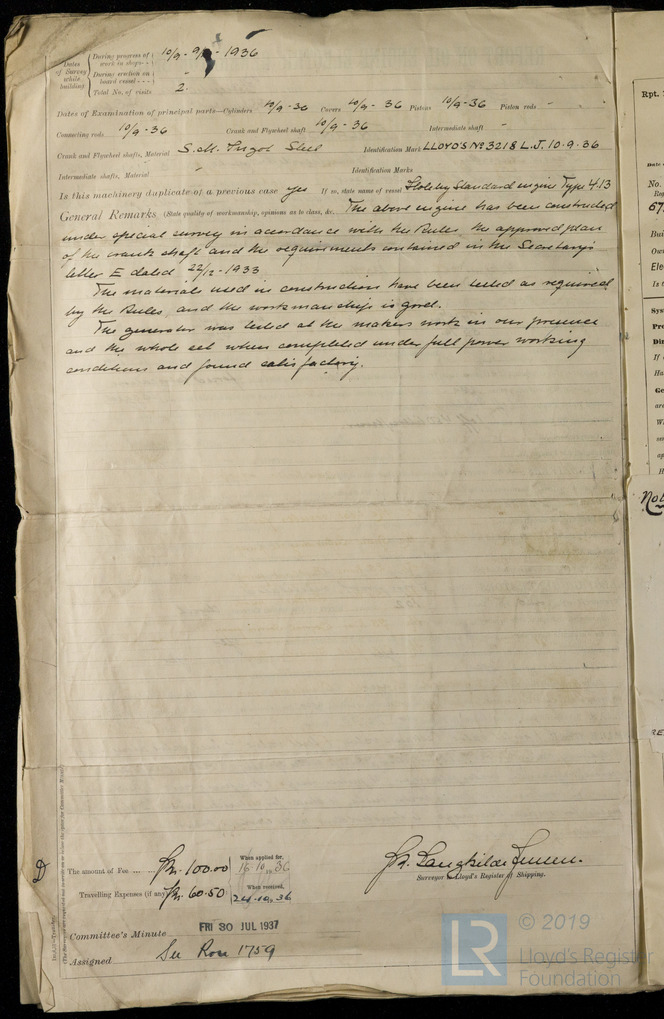 Dates of Survey while building
During progress of work in shops - - 10/9 - 9/ - 1936
During erection on board vessel - - - "
Total No. of visits 2.
Dates of Examination of principal parts—Cylinders 10/9-36 Covers 10/9-36 Pistons 10/9-36 Piston rods -
Connecting rods 10/9-36 Crank and Flywheel shaft 10/9-36 Intermediate shaft -
Crank and Flywheel shafts, Material S.M. Ingot Steel Identification Mark LLOYD'S No 3218 L.J. 10.9.36
Intermediate shafts, Material " Identification Marks
Is this machinery duplicate of a previous case yes If so, state name of vessel Standard engine Type 413
General Remarks (State quality of workmanship, opinions as to class, &c. The above engine has been constructed
under special survey in accordance with the Rules, the approved plan
of the crank shaft and the requirements contained in the Secretary's
letter E dated 22/12-1933
The materials used in construction have been tested as required
by the Rules and the workmanship is good.
The generator was tested at the makers work in our presence
and the whole set when completed under full power working
conditions and found satisfactory.
The amount of Fee ... Kr. 100.00 When applied for, 16 10 1936
Travelling Expenses (if any) Kr. 60.50 When received, 24.10.36
J. Langkilde Jensen.
Surveyor to Lloyd's Register of Shipping.
Committee's Minute FRI 30 JUL 1937
Assigned See Ron 1759
D
© 2019
LR Lloyd's Register
Foundation
Rpt.
No.
Ele
Not